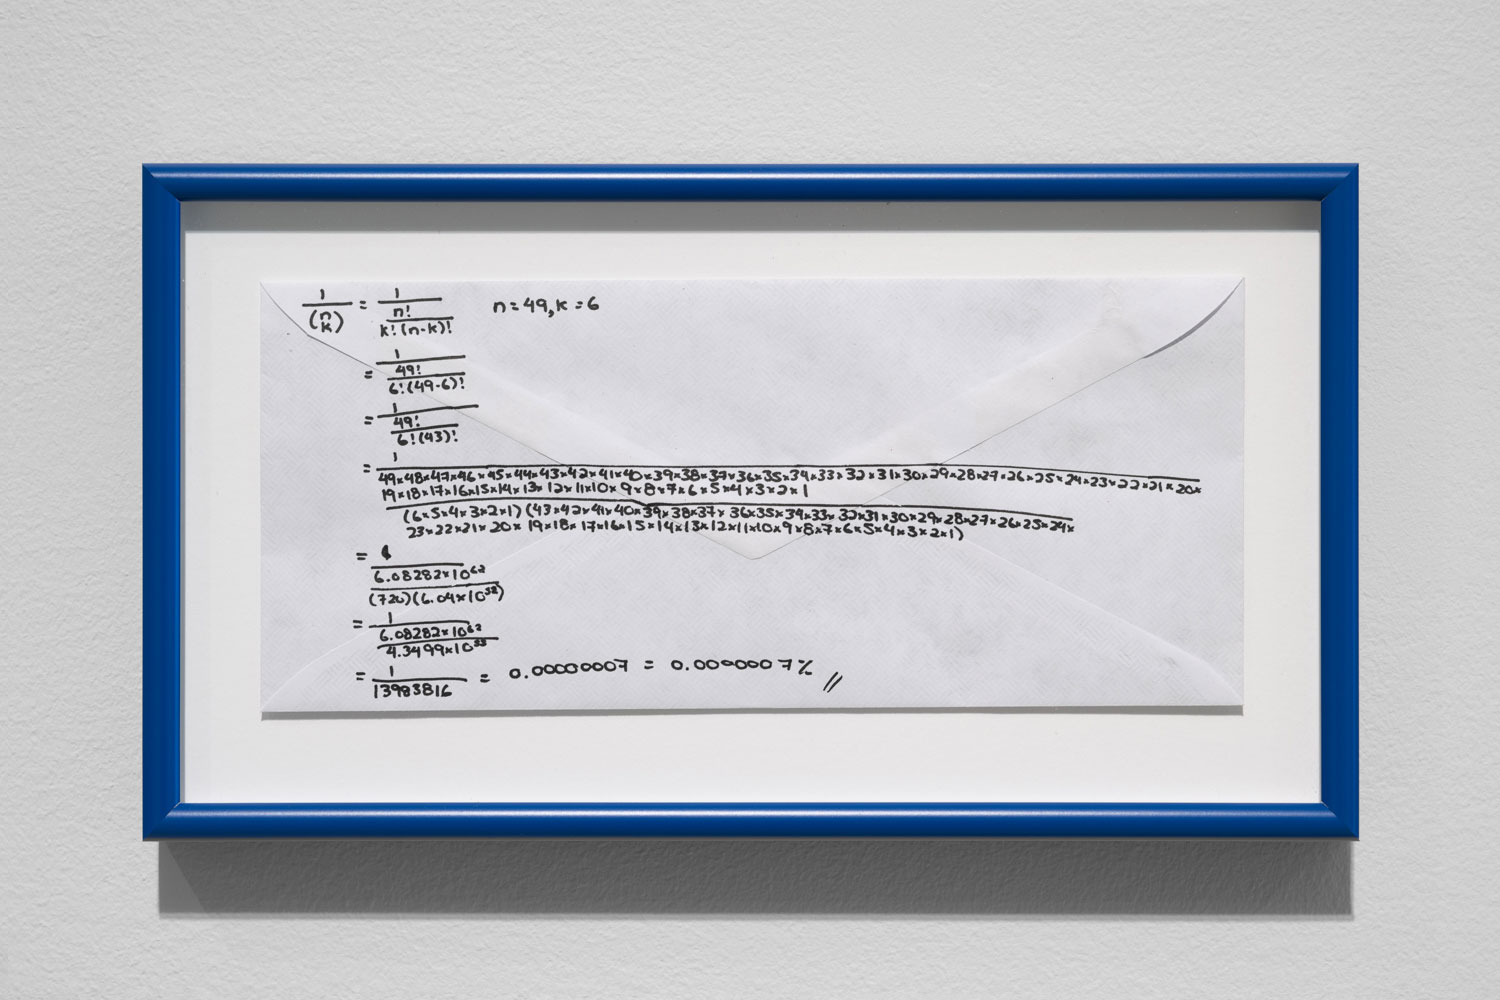 1/(n k) = 1/(n!/(k!(n-k)!)) n=49,k=6
= 1/(49!/(6!(49-6)!))
= 1/(49!/(6!(43)!))
= 1
49×48×47×46×45×44×43×42×41×40×39×38×37×36×35×34×33×32×31×30×29×28×27×26×25×24×23×22×21×20×
19×18×17×16×15×14×13×12×11×10×9×8×7×6×5×4×3×2×1
(6×5×4×3×2×1)(43×42×41×40×39×38×37×36×35×34×33×32×31×30×29×28×27×26×25×24×
23×22×21×20×19×18×17×16×15×14×13×12×11×10×9×8×7×6×5×4×3×2×1)
= 1/(6.08282×10^62/((720)(6.04×10^52)))
= 1/(6.08282×10^62/(4.3499×10^55))
= 1/13983816 = 0.00000007 = 0.0000007% //